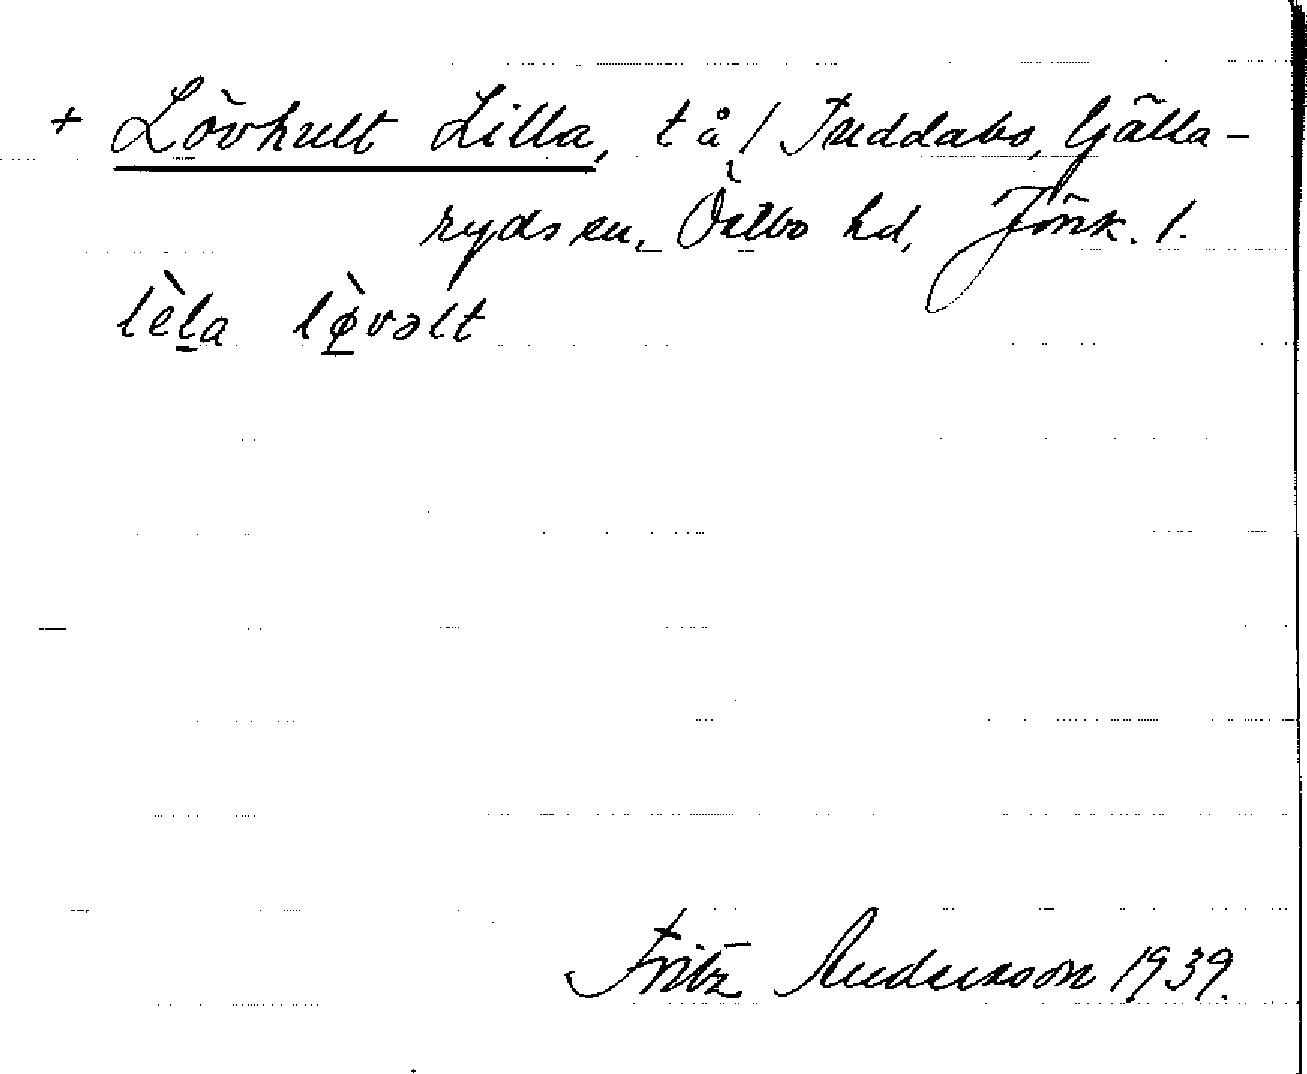 + Lövhult Lilla, t å / Fuddabo, Gjälla-
ryds sn, Östbo hd, Jönk. l.
lèla lø̀vəlt
Fritz Andersson 1939.